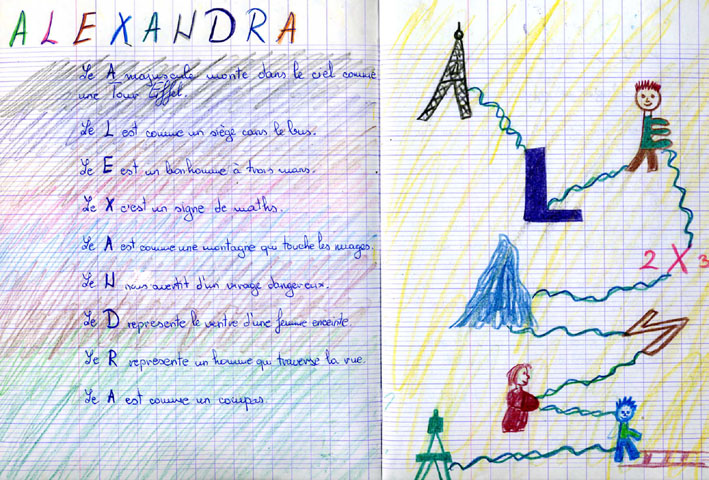 ALEXANDRA
Le A majuscule monte dans le ciel comme
une Tour Eiffel.
Le L est comme un siège dans le bus.
Le E est un bonhomme à trois mains.
Le X c'est un signe de maths.
Le A est comme une montagne qui touche les nuages.
Le N nous avertit d'un virage dangereux.
Le D représente le ventre d'une femme enceinte.
Le R représente un homme qui traverse la vue.
Le A est comme un compas.
L
E
2 X 3